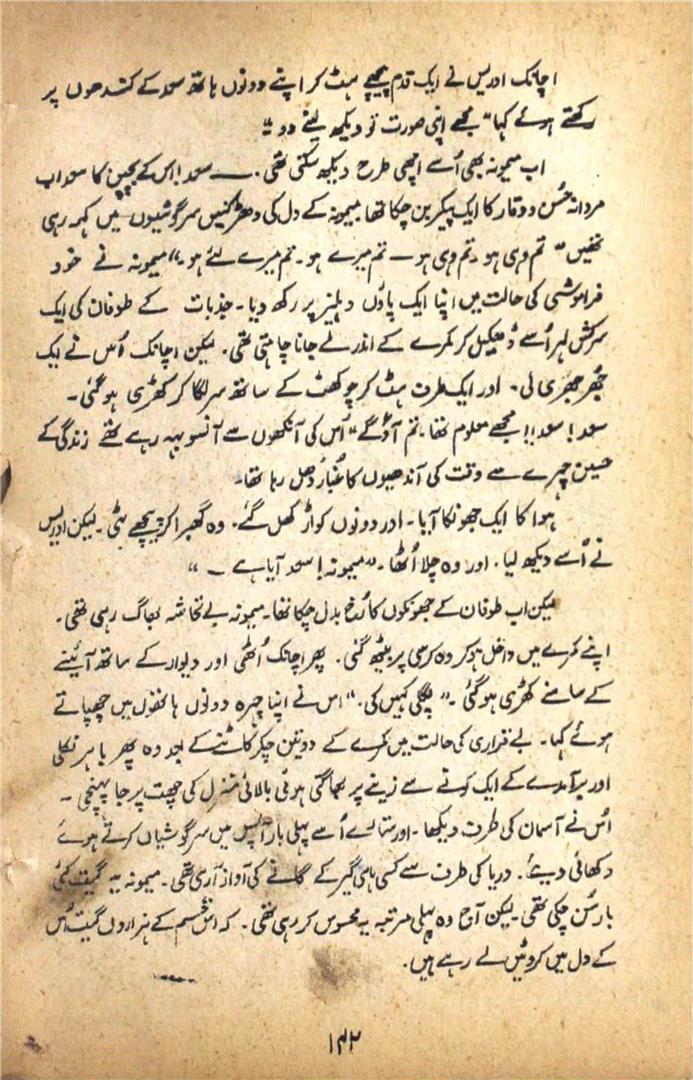 اچانک ادریس نے ایک قدم پیچھے ہٹ کر اپنے دونوں ہاتھ سعد کے کندھوں پر
رکھتے ہوئے کہا "مجھے اپنی صورت تو دیکھ لینے دو"
اب میمونہ بھی اُسے اچھی طرح دیکھ سکتی تھی۔ — سعد! اس کے بچپن کا سعد اب
مردانہ حُسن و وقار کا ایک پیکر بن چکا تھا۔ میمونہ کے دل کی دھڑکنیں سرگوشیوں میں کہہ رہی
تھیں "تم وہی ہو۔ تم وہی ہو — تم میرے ہو۔ تم میرے لئے ہو۔" میمونہ نے خود
فراموشی کی حالت میں اپنا ایک پاؤں دہلیز پر رکھ دیا۔ جذبات کے طوفان کی ایک
سرکش لہر اُسے دھکیل کر کمرے کے اندر لے جانا چاہتی تھی۔ لیکن اچانک اُس نے ایک
جُھرجھری لی۔ اور ایک طرف ہٹ کر چوکھٹ کے ساتھ سر لگا کر کھڑی ہو گئی۔
سعد! سعد!! مجھے معلوم تھا۔ تم آؤ گے" اُس کی آنکھوں سے آنسو بہہ رہے تھے زندگی کے
حسین چہرے سے وقت کی آندھیوں کا غُبار دُھل رہا تھا۔
ہوا کا ایک جھونکا آیا۔ اور دونوں کواڑ کھل گئے۔ وہ گھبرا کر پیچھے ہٹی۔ لیکن ادریس
نے اُسے دیکھ لیا۔ اور وہ چلا اُٹھا۔ "میمونہ! سعد آیا ہے — "
لیکن اب طوفان کے جھونکوں کا رُخ بدل چکا تھا۔ میمونہ بے تحاشہ بھاگ رہی تھی۔
اپنے کمرے میں داخل ہو کر وہ کرسی پر بیٹھ گئی۔ پھر اچانک اُٹھی اور دیوار کے ساتھ آئینے
کے سامنے کھڑی ہو گئی۔ "پگلی کہیں کی۔" اس نے اپنا چہرہ دونوں ہاتھوں میں چھپاتے
ہوئے کہا۔ بے قراری کی حالت میں کمرے کے دو تین چکر کاٹنے کے بعد وہ پھر باہر نکلی
اور برآمدے کے ایک کونے سے زینے پر بھاگتی ہوئی بالائی منزل کی چھت پر جا پہنچی۔
اُس نے آسمان کی طرف دیکھا۔ اور ستارے اُسے پہلی بار آپس میں سرگوشیاں کرتے ہوئے
دکھائی دیئے۔ دریا کی طرف سے کسی ماہی گیر کے گانے کی آواز آ رہی تھی۔ میمونہ یہ گیت کئی
بار سُن چکی تھی۔ لیکن آج وہ پہلی مرتبہ یہ محسوس کر رہی تھی۔ کہ اس قسم کے ہزاروں گیت اُس
کے دل میں کروٹیں لے رہے ہیں۔
۱۴۲